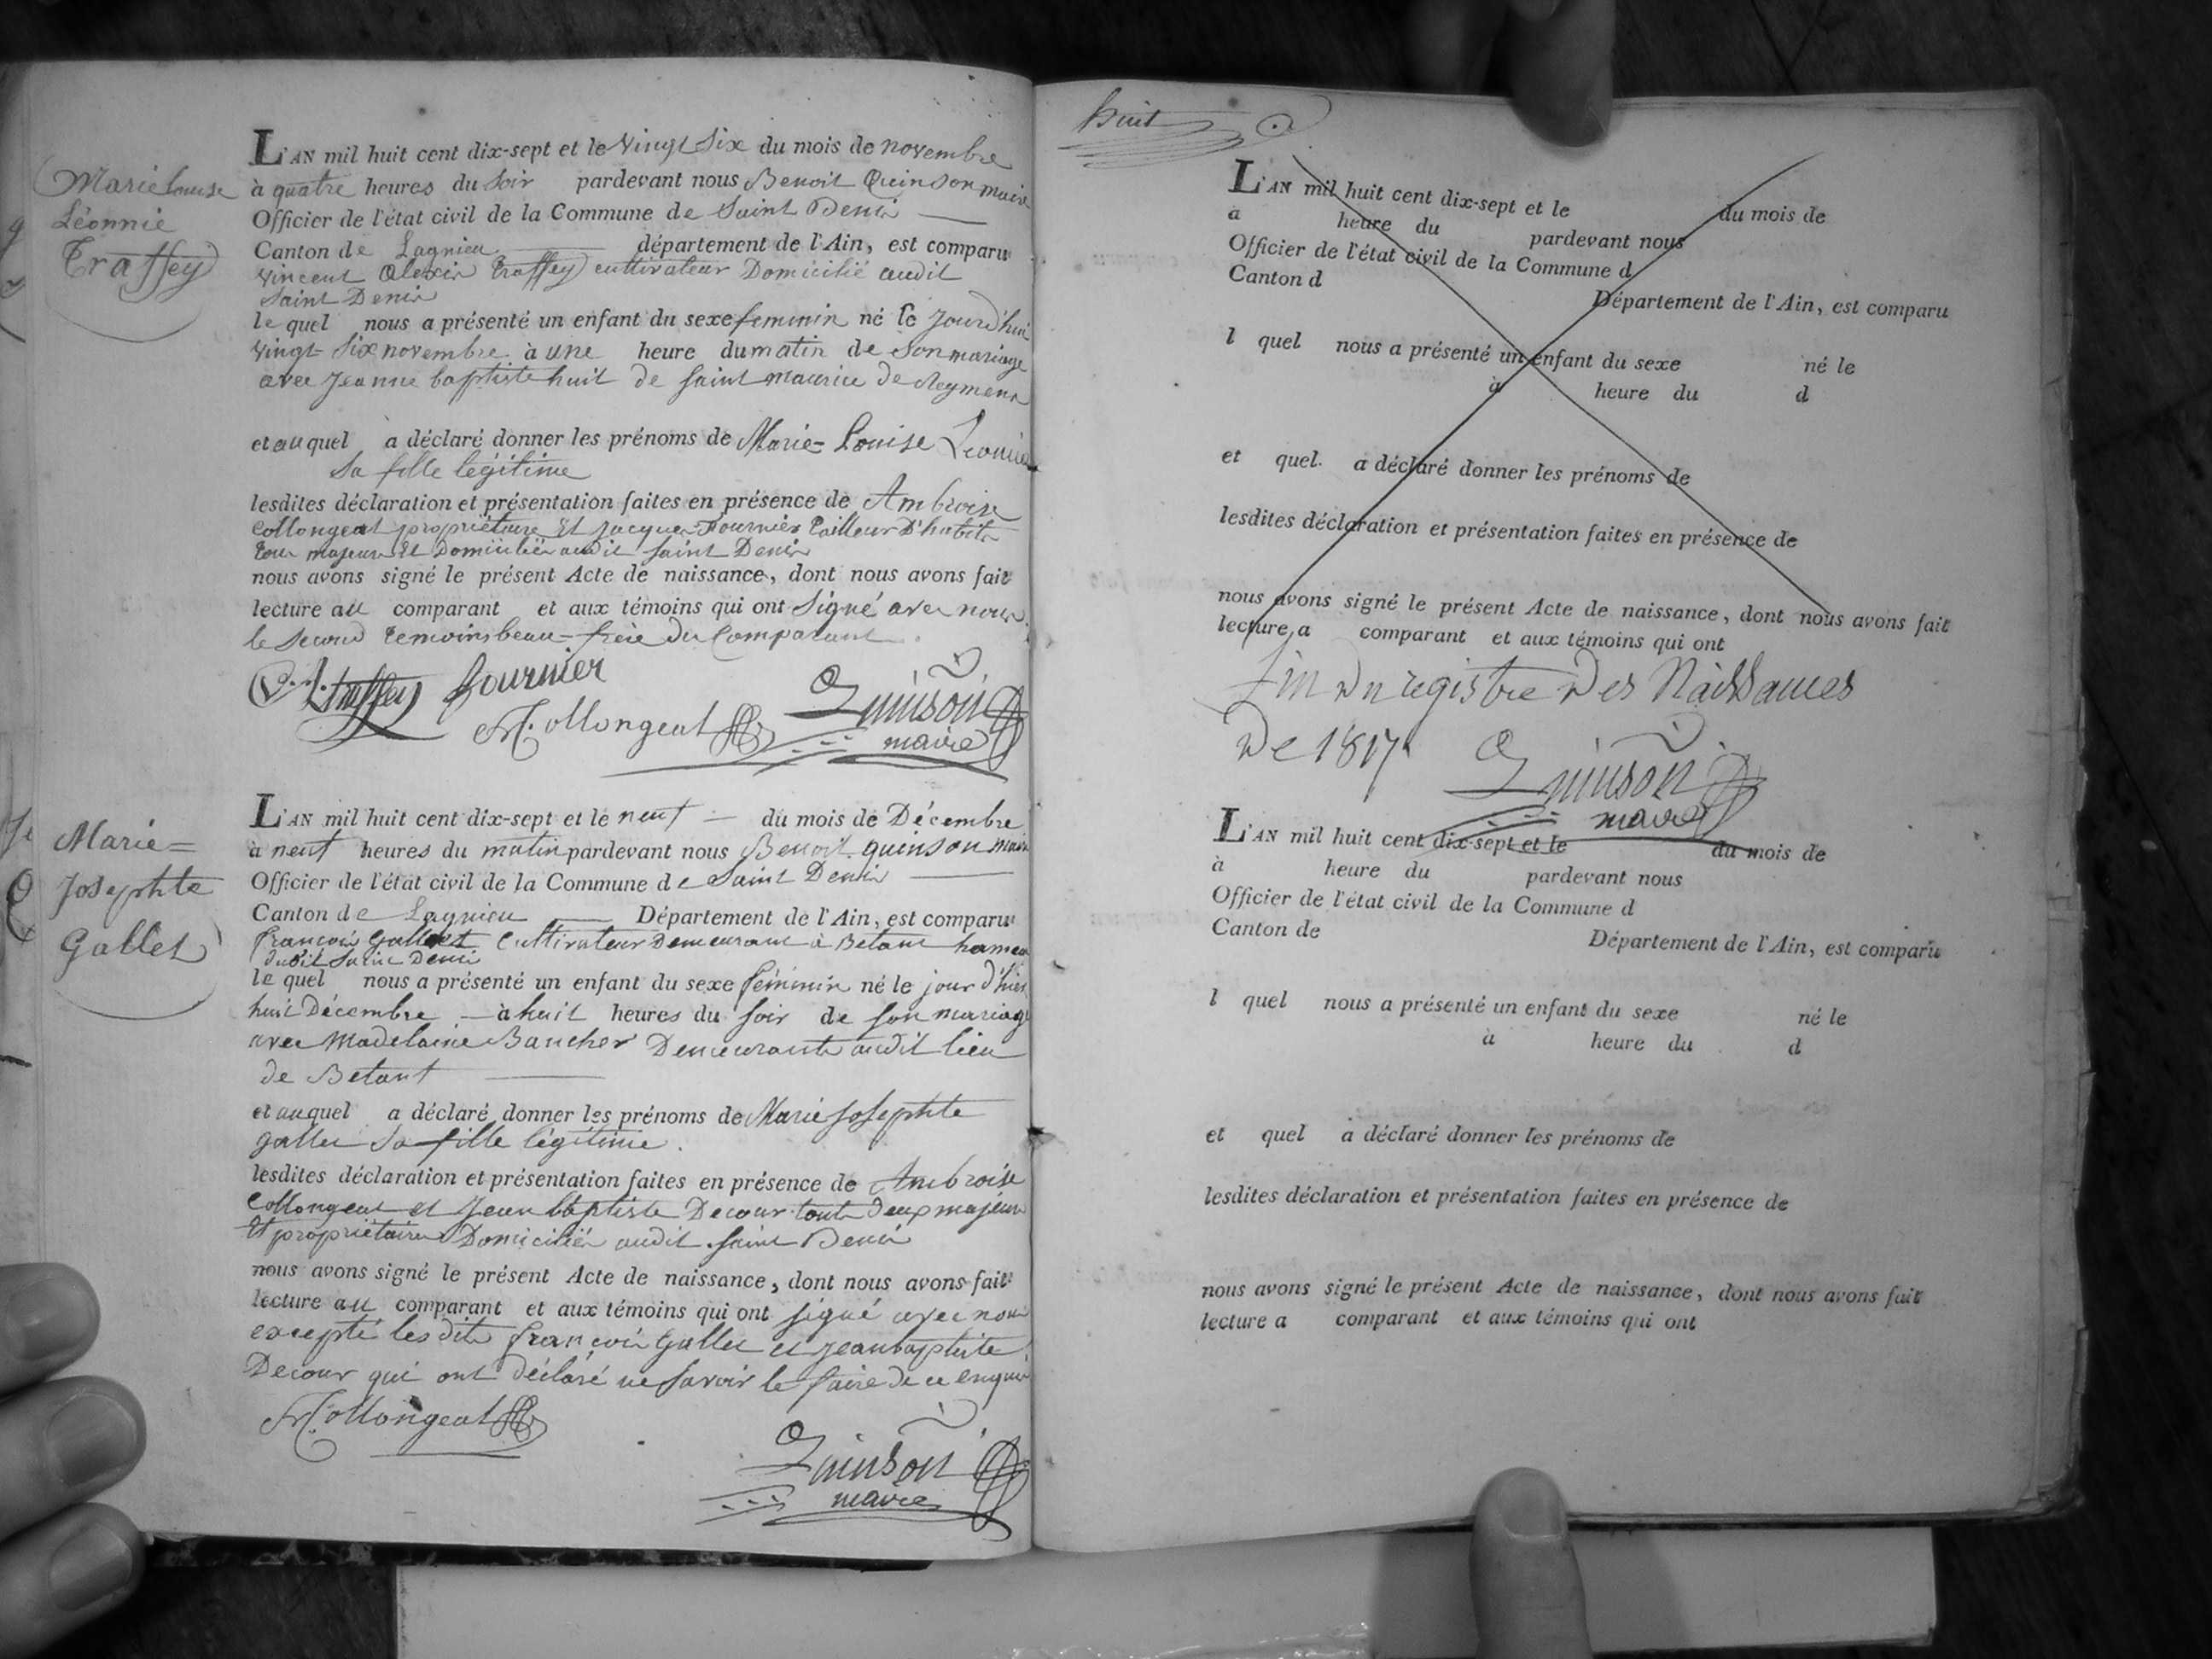 Marie Louise
Léonnie
Traffey
L'AN mil huit cent dix-sept et le vingt six du mois de novembre
à quatre heures du soir pardevant nous Benoit Quinson maire
Officier de l'état civil de la Commune de Saint Denis
Canton de Lagnieu département de l'Ain, est comparu
vincent Alexis Traffey cultivateur Domicilié audit
Saint Denis
le quel nous a présenté un enfant du sexe feminin né le jourd'hui
vingt-six novembre à une heure du matin de son mariage
avec jeanne baptiste huit de saint maurice de
et au quel a déclaré donner les prénoms de Marie-Louise Leonnie
sa fille legitime
lesdites déclaration et présentation faites en présence de Ambroise
Collongeat propriétaire Et jacques Fournier tailleur D'habits
tous majeurs Et Domiciliés audit saint Denis
nous avons signé le présent Acte de naissance, dont nous avons fait
lecture au comparant et aux témoins qui ont signé avec nous
le second temoins beau-frère du Comparant.
Traffey fournier
Collongeat Quinson
maire
Marie=
Josephte
Gallet
L'AN mil huit cent dix-sept et le neuf du mois de Décembre
à neuf heures du matin pardevant nous Benoit quinson maire
Officier de l'état civil de la Commune de Saint Denis
Canton de Lagnieu Département de l'Ain, est comparu
françois Gallet Cultivateur Demeurant à Betant hameau
dudit Saint Denis
le quel nous a présenté un enfant du sexe féminin né le jour d'hier
huit Décembre à huit heures du soir de son mariage
avec Madelaine Baucher Demeurante audit lieu
de Betant
et au quel a déclaré donner les prénoms de Marie Josephte
gallet sa fille légitime.
lesdites déclaration et présentation faites en présence de Ambroise
Collongeat et Jean baptiste Decour tout deux majeurs
Et propriétaires Domiciliés audit saint Denis
nous avons signé le présent Acte de naissance, dont nous avons fait
lecture au comparant et aux témoins qui ont signé avec nous
excepté lesdits françois Gallet et jean baptiste
Decour qui ont déclaré ne savoir le faire de ce enquis
Collongeat
Quinson
maire
huit
L'AN mil huit cent dix-sept et le du mois de
à heure du pardevant nous
Officier de l'état civil de la Commune d
Canton d Département de l'Ain, est comparu
l quel nous a présenté un enfant du sexe né le
à heure du d
et quel. a déclaré donner les prénoms de
lesdites déclaration et présentation faites en présence de
nous avons signé le présent Acte de naissance, dont nous avons fait
lecture a comparant et aux témoins qui ont
Fin Du registre Des Naissances
De 1817
Quinson
maire
L'AN mil huit cent dix-sept et le du mois de
à heure du pardevant nous
Officier de l'état civil de la Commune d
Canton de Département de l'Ain, est comparu
l quel nous a présenté un enfant du sexe né le
à heure du d
et quel a déclaré donner les prénoms de
lesdites déclaration et présentation faites en présence de
nous avons signé le présent Acte de naissance, dont nous avons fait
lecture a comparant et aux témoins qui ont